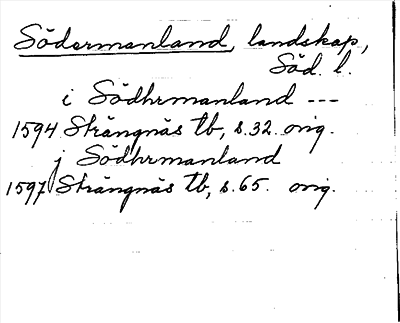 Södermanland, landskap,
Söd. l.
i Södhrmanland ---
1594 Strängnäs tb, s.32. orig.
j Södhrmanland
1597 Strängnäs tb, s.65. orig.